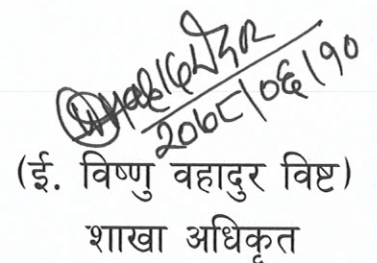 २०७८/०६/१०
(ई. विष्णु वहादुर विष्ट)
शाखा अधिकृत